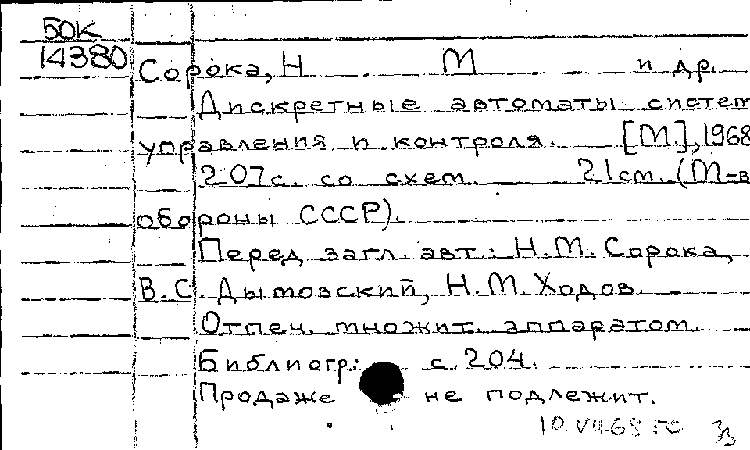 БОК
14380
Сорока, Н М и др.
Дискретные автоматы систем
управления и контроля. [М.], 1968
207с. со схем. 21см. (М-в
обороны СССР).
Перед загл. авт.: Н.М. Сорока,
В.С. Дымовский, Н.М. Ходов.
Отпеч. множит. аппаратом.
Библиогр.: с. 204.
Продаже не подлежит.
10.VII.68